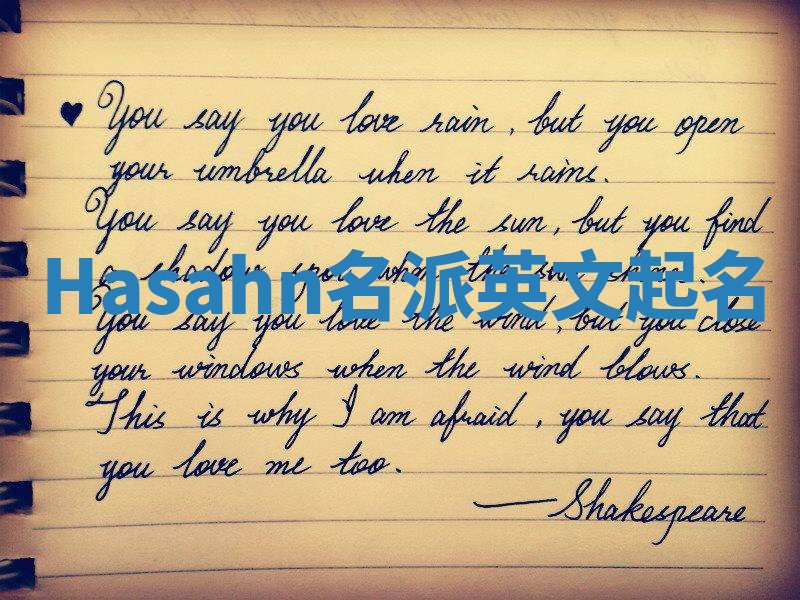 ♥ You say you love rain, but you open
your umbrella when it rains.
You say you love the sun, but you find
a shadow spot when the sun shines.
Hasahn名派英文起名
You say you love the wind, but you close
your windows when the wind blows.
This is why I am afraid, you say that
you love me too.
— Shakespeare